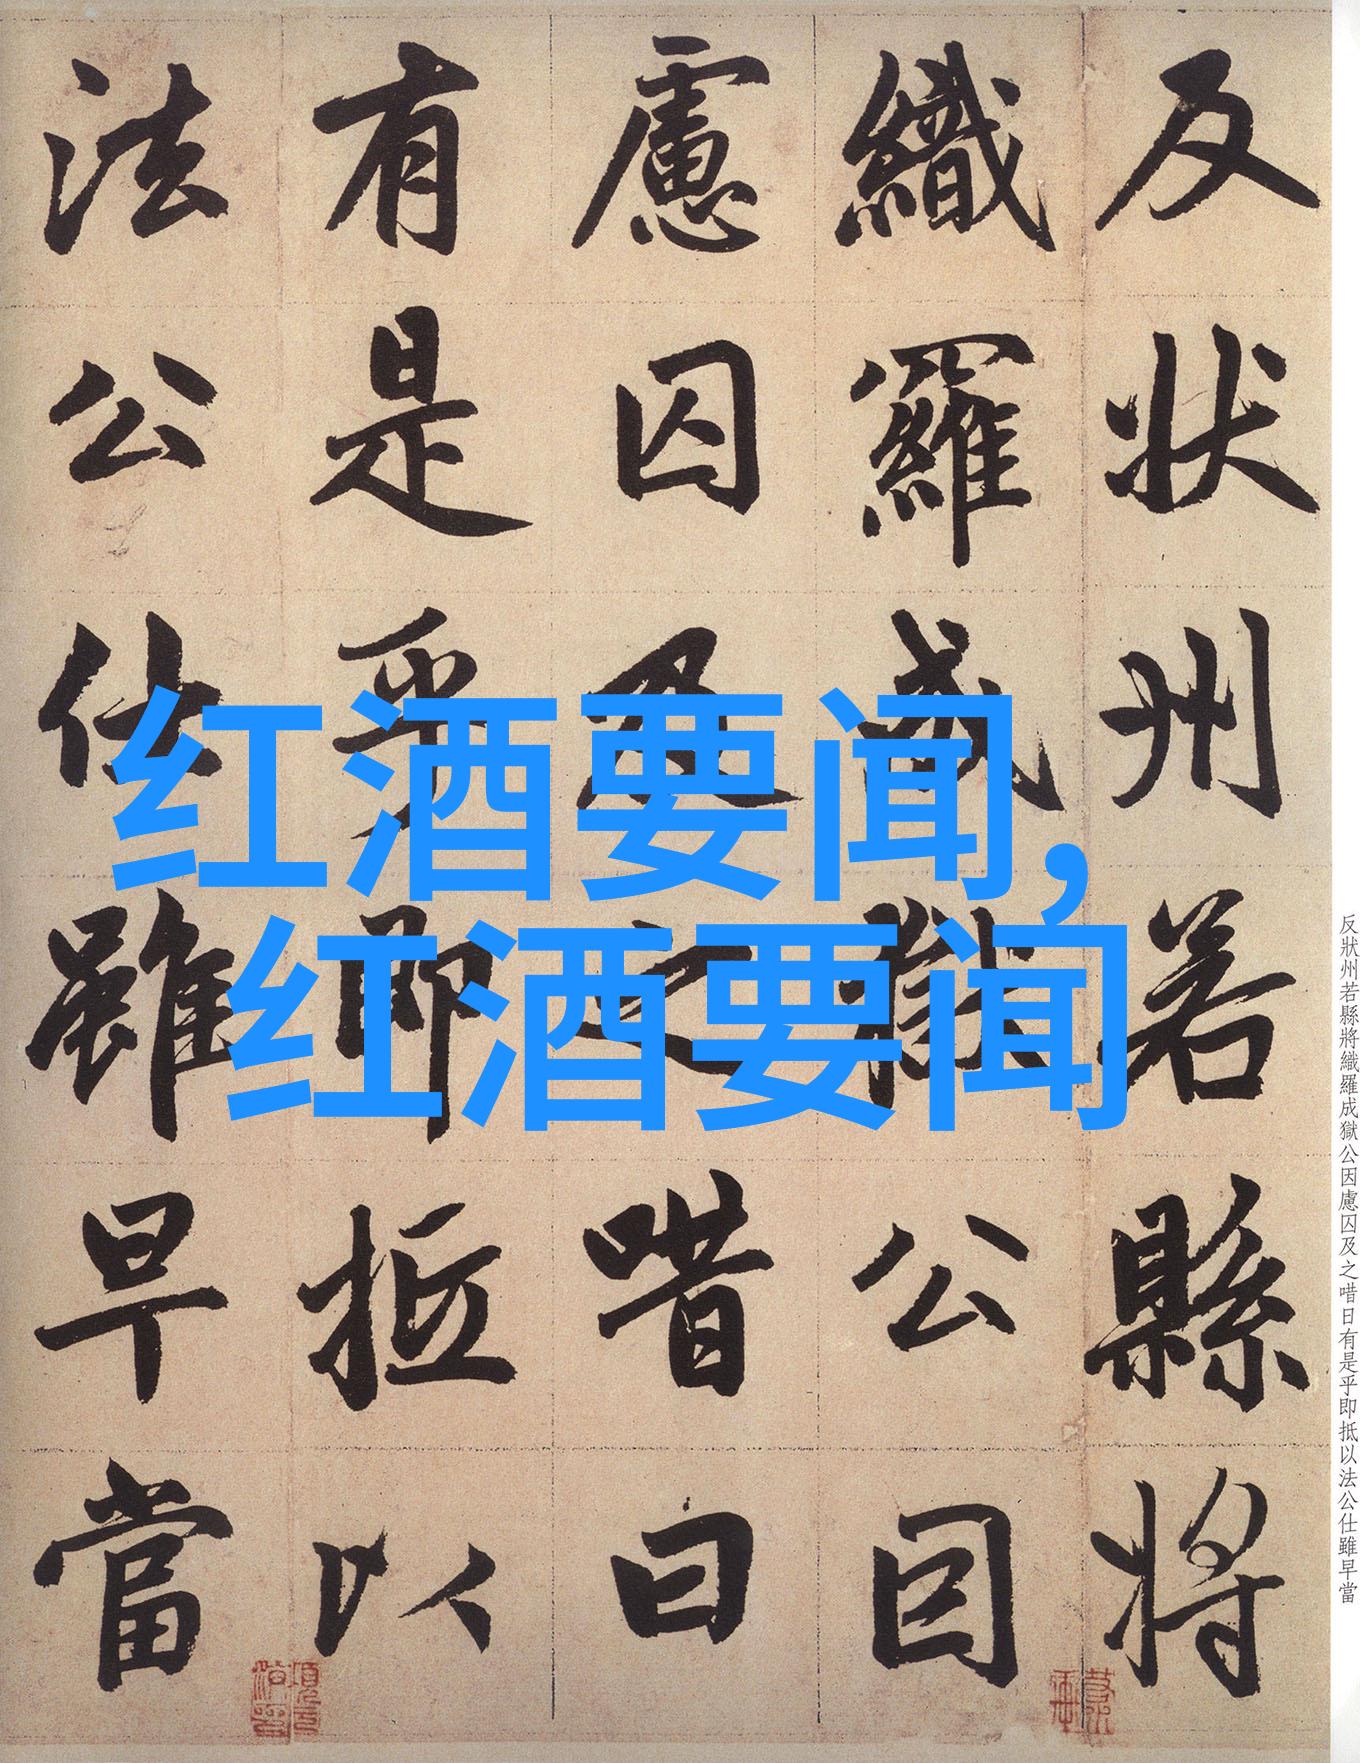 红酒要闻,
红酒要闻
反状州若縣將
織羅成獄公因
慮囚及之唶曰
有是乎即抵以
法公仕雖早當
反狀州若縣將織羅成獄公因慮囚及之唶日有是乎即抵以法公仕雖早當